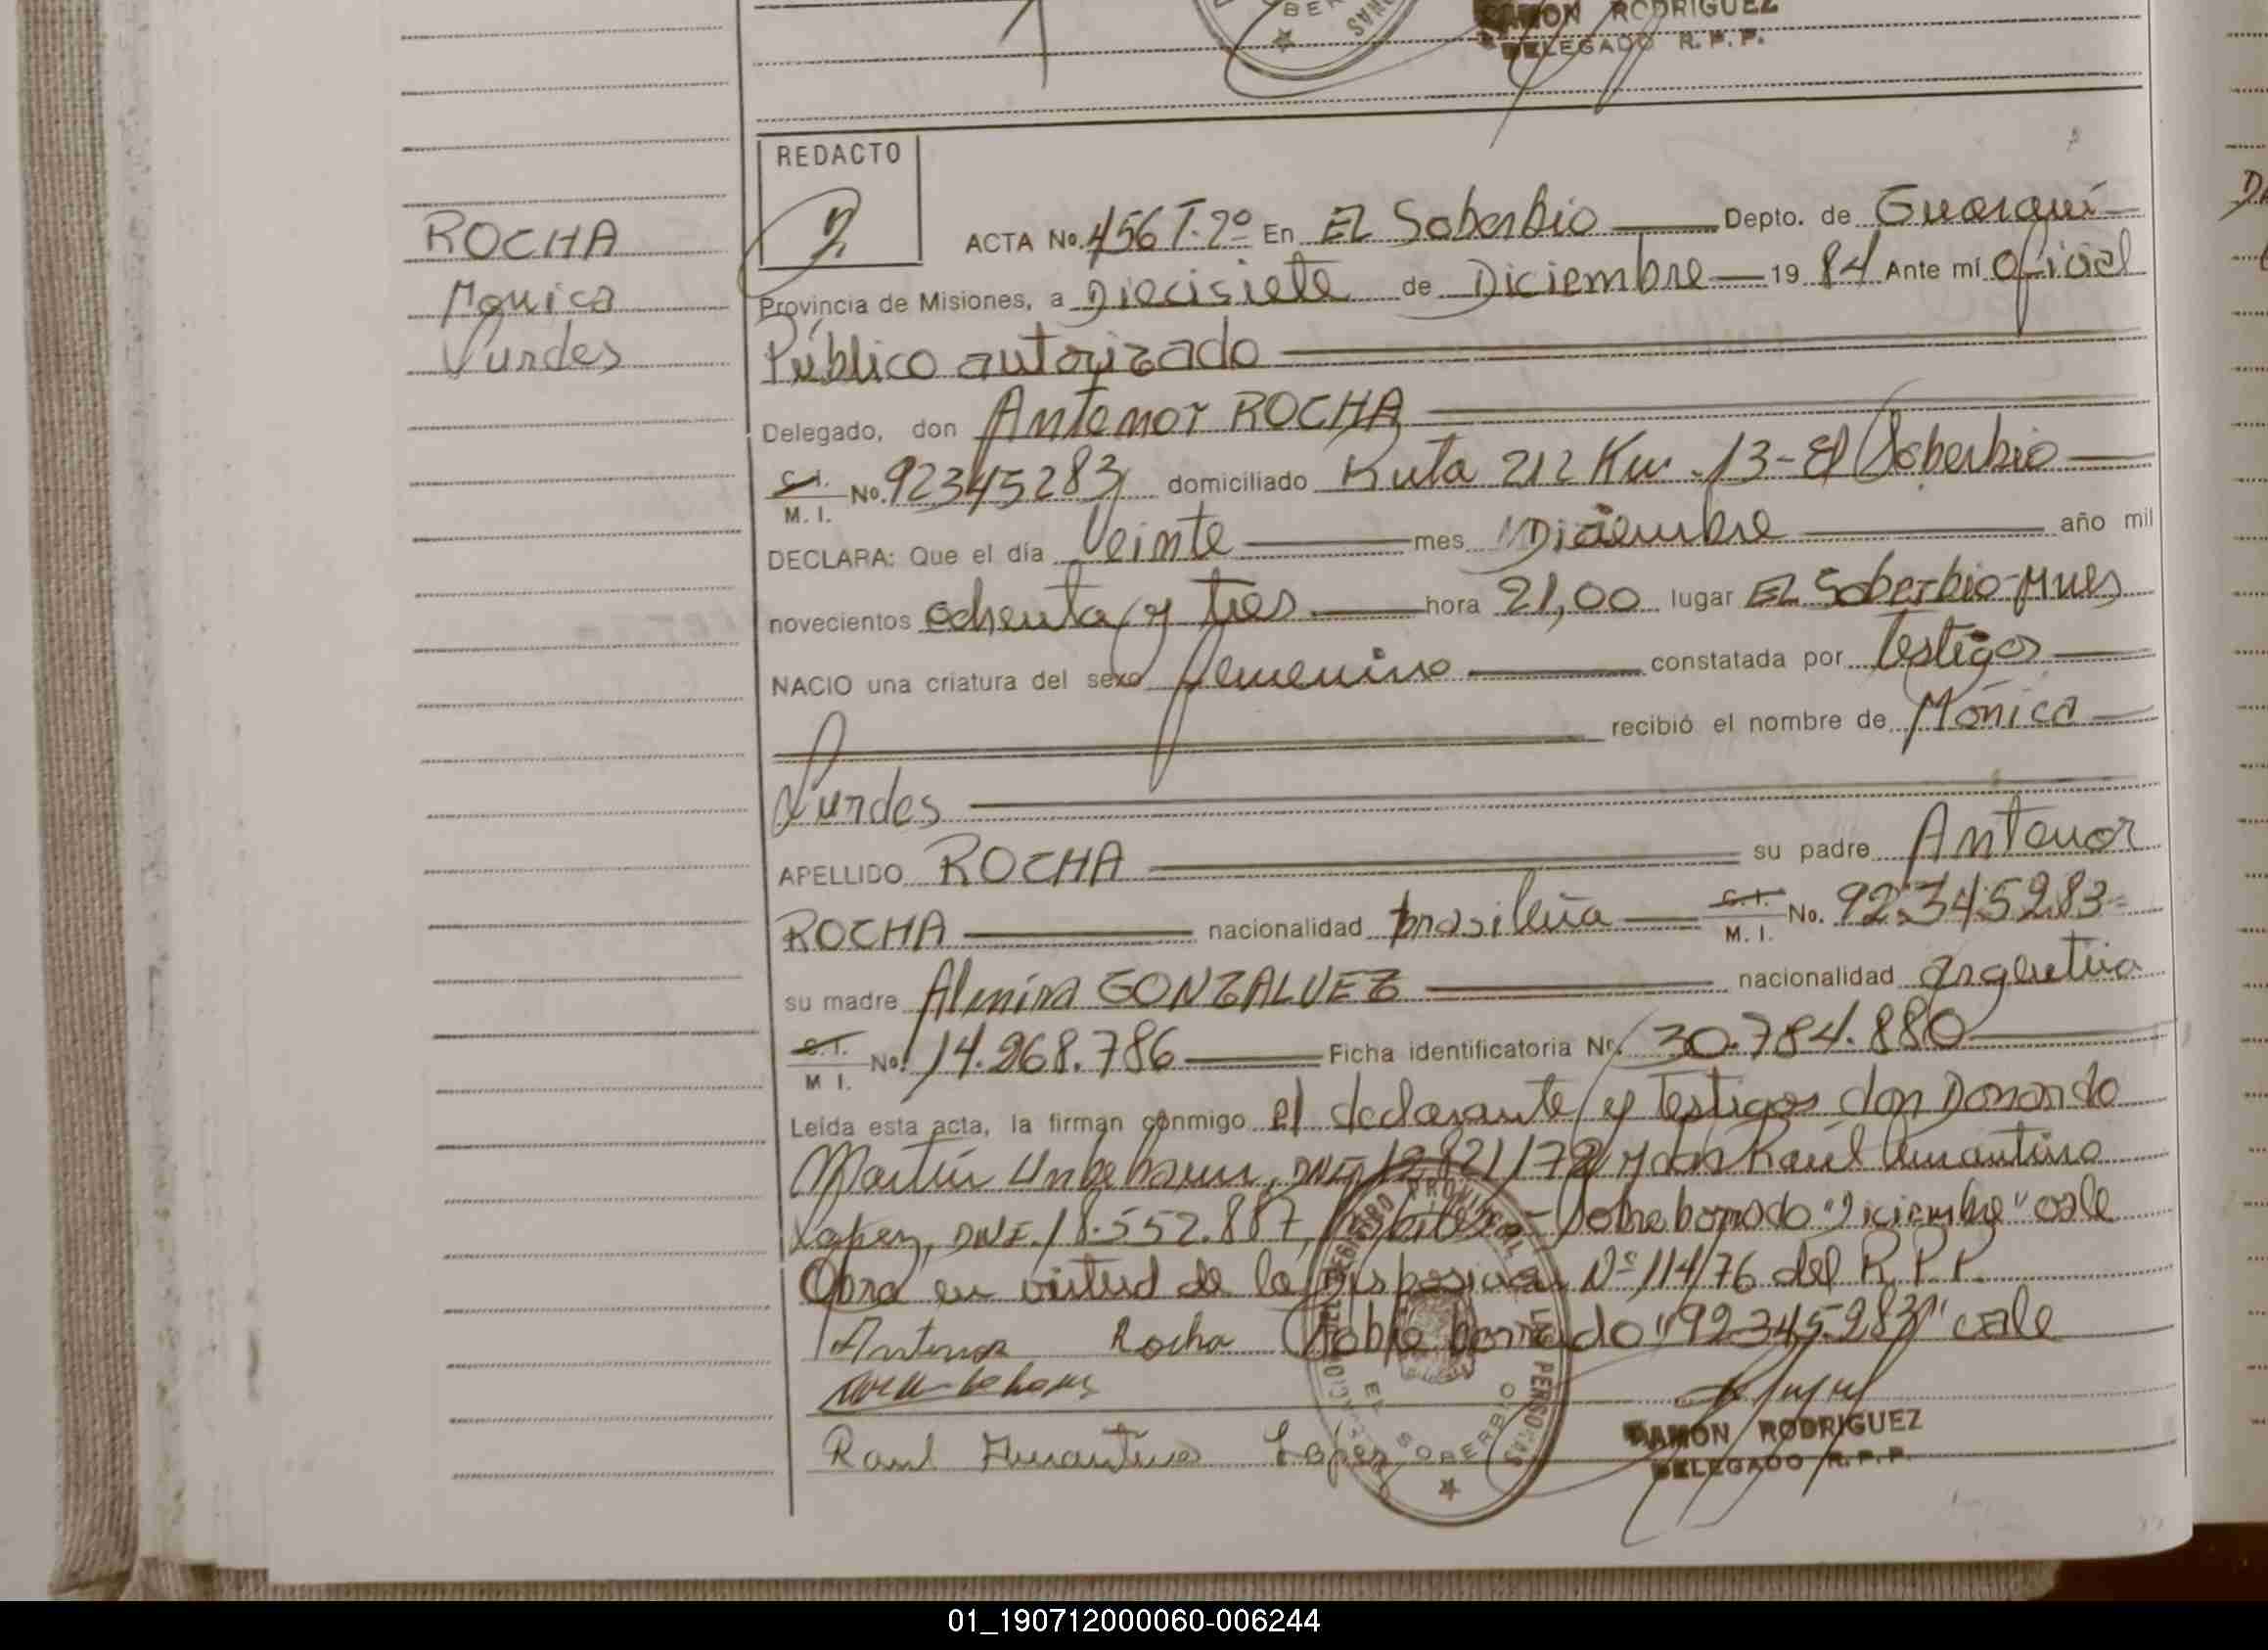 RAMON RODRIGUEZ
DELEGADO R.P.P.
REDACTO
ROCHA
Monica
Lurdes
ACTA No. 456 T.2º En EL Soberbio Depto. de Guarani
Provincia de Misiones, a Diecisiete de Diciembre 19 84 Ante mí Oficial
Público autorizado
Delegado, don Antenor ROCHA
C.I. M.I. No. 92345283 domiciliado Ruta 212 Km. 13 - El Soberbio
DECLARA: Que el día Veinte mes Diciembre año mil
novecientos ochenta y tres hora 21,00 lugar EL Soberbio-Mnes
NACIO una criatura del sexo femenino constatada por testigos
recibió el nombre de Mónica
Lurdes
APELLIDO ROCHA su padre Antenor
ROCHA nacionalidad brasileña C.I. M.I. No. 92.345.283
su madre Almira GONZALVEZ nacionalidad argentina
C.I. M I. No. 14.268.786 Ficha identificatoria Nr. 30.784.880
Leída esta acta, la firman conmigo el declarante y testigos don
Martin DNI 12.821.172 y don Raúl Amantino
Lopez, DNI. 18.552.887, Sobreborrado "Diciembre" vale
Obra en virtud de la Disposicion Nº 114/76 del R.P.P.
Antenor Rocha Sobre borrado "92.345.283" vale
Raul Amantino Lopez
RAMON RODRIGUEZ
DELEGADO R.P.P.
EL SOBERBIO
01_190712000060-006244